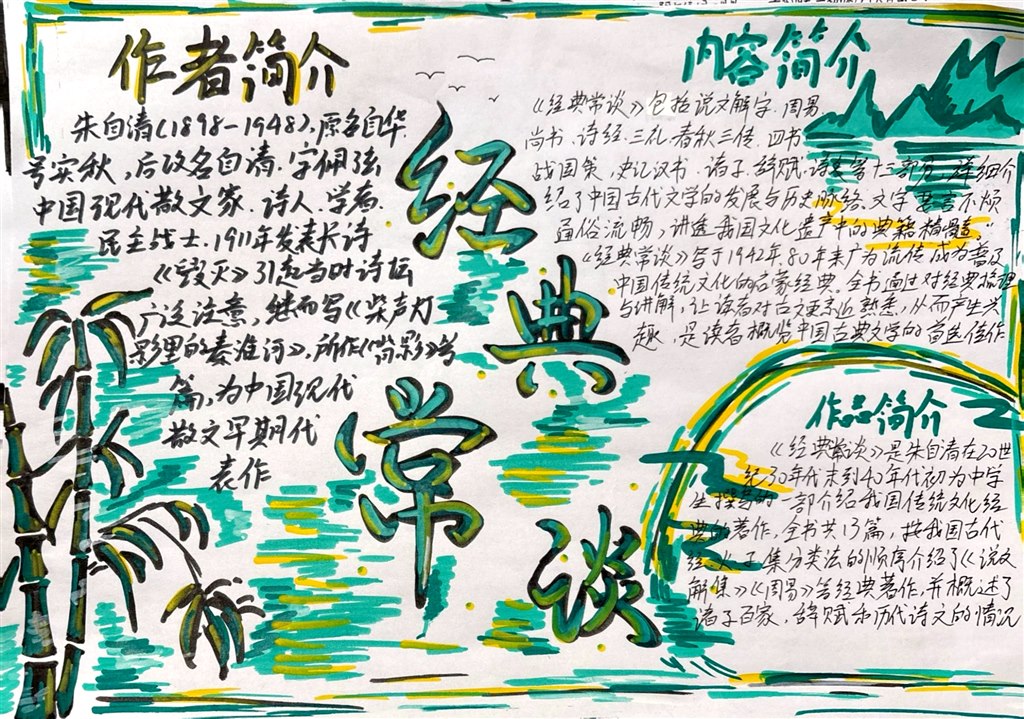 作者简介
朱自清(1898-1948),原名自华
号实秋,后改名自清.字佩弦
中国现代散文家.诗人.学者.
民主战士.1911年发表长诗
《毁灭》引起当时诗坛
广泛注意,继而写《桨声灯
影里的秦淮河》,所作《背影》等
篇,为中国现代
散文早期代
表作
经典常谈
内容简介
《经典常谈》包括说文解字.周易
尚书.诗经.三礼.春秋三传.四书
战国策,史记汉书.诸子.辞赋,诗文等十三部分,详细介
绍了中国古代文学的发展与历史脉络.文字要言不烦
通俗流畅,讲透我国文化遗产中的典籍精髓。
《经典常谈》写于1942年.80年来广为流传成为普及
中国传统文化的启蒙经典.全书通过对经典梳理
与讲解,让读者对古文更亲近熟悉,从而产生兴
趣,是读者概览中国古典文学的首选佳作
作品简介
《经典常谈》是朱自清在20世
纪30年代末到40年代初为中学
生撰写的一部介绍我国传统文化经
典的著作,全书共13篇,按我国古代
经史子集分类法的顺序介绍了《说文
解集》《周易》等经典著作,并概述了
诸子百家,辞赋和历代诗文的情况